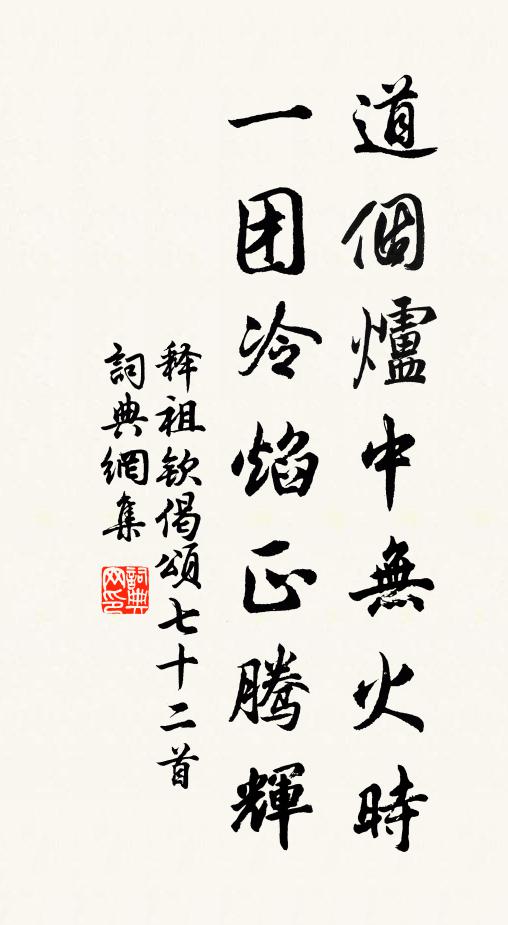 道個爐中無火時
一团冷焰正腾輝
释祖钦偈頌七十二首
詞典網集
詞典网印